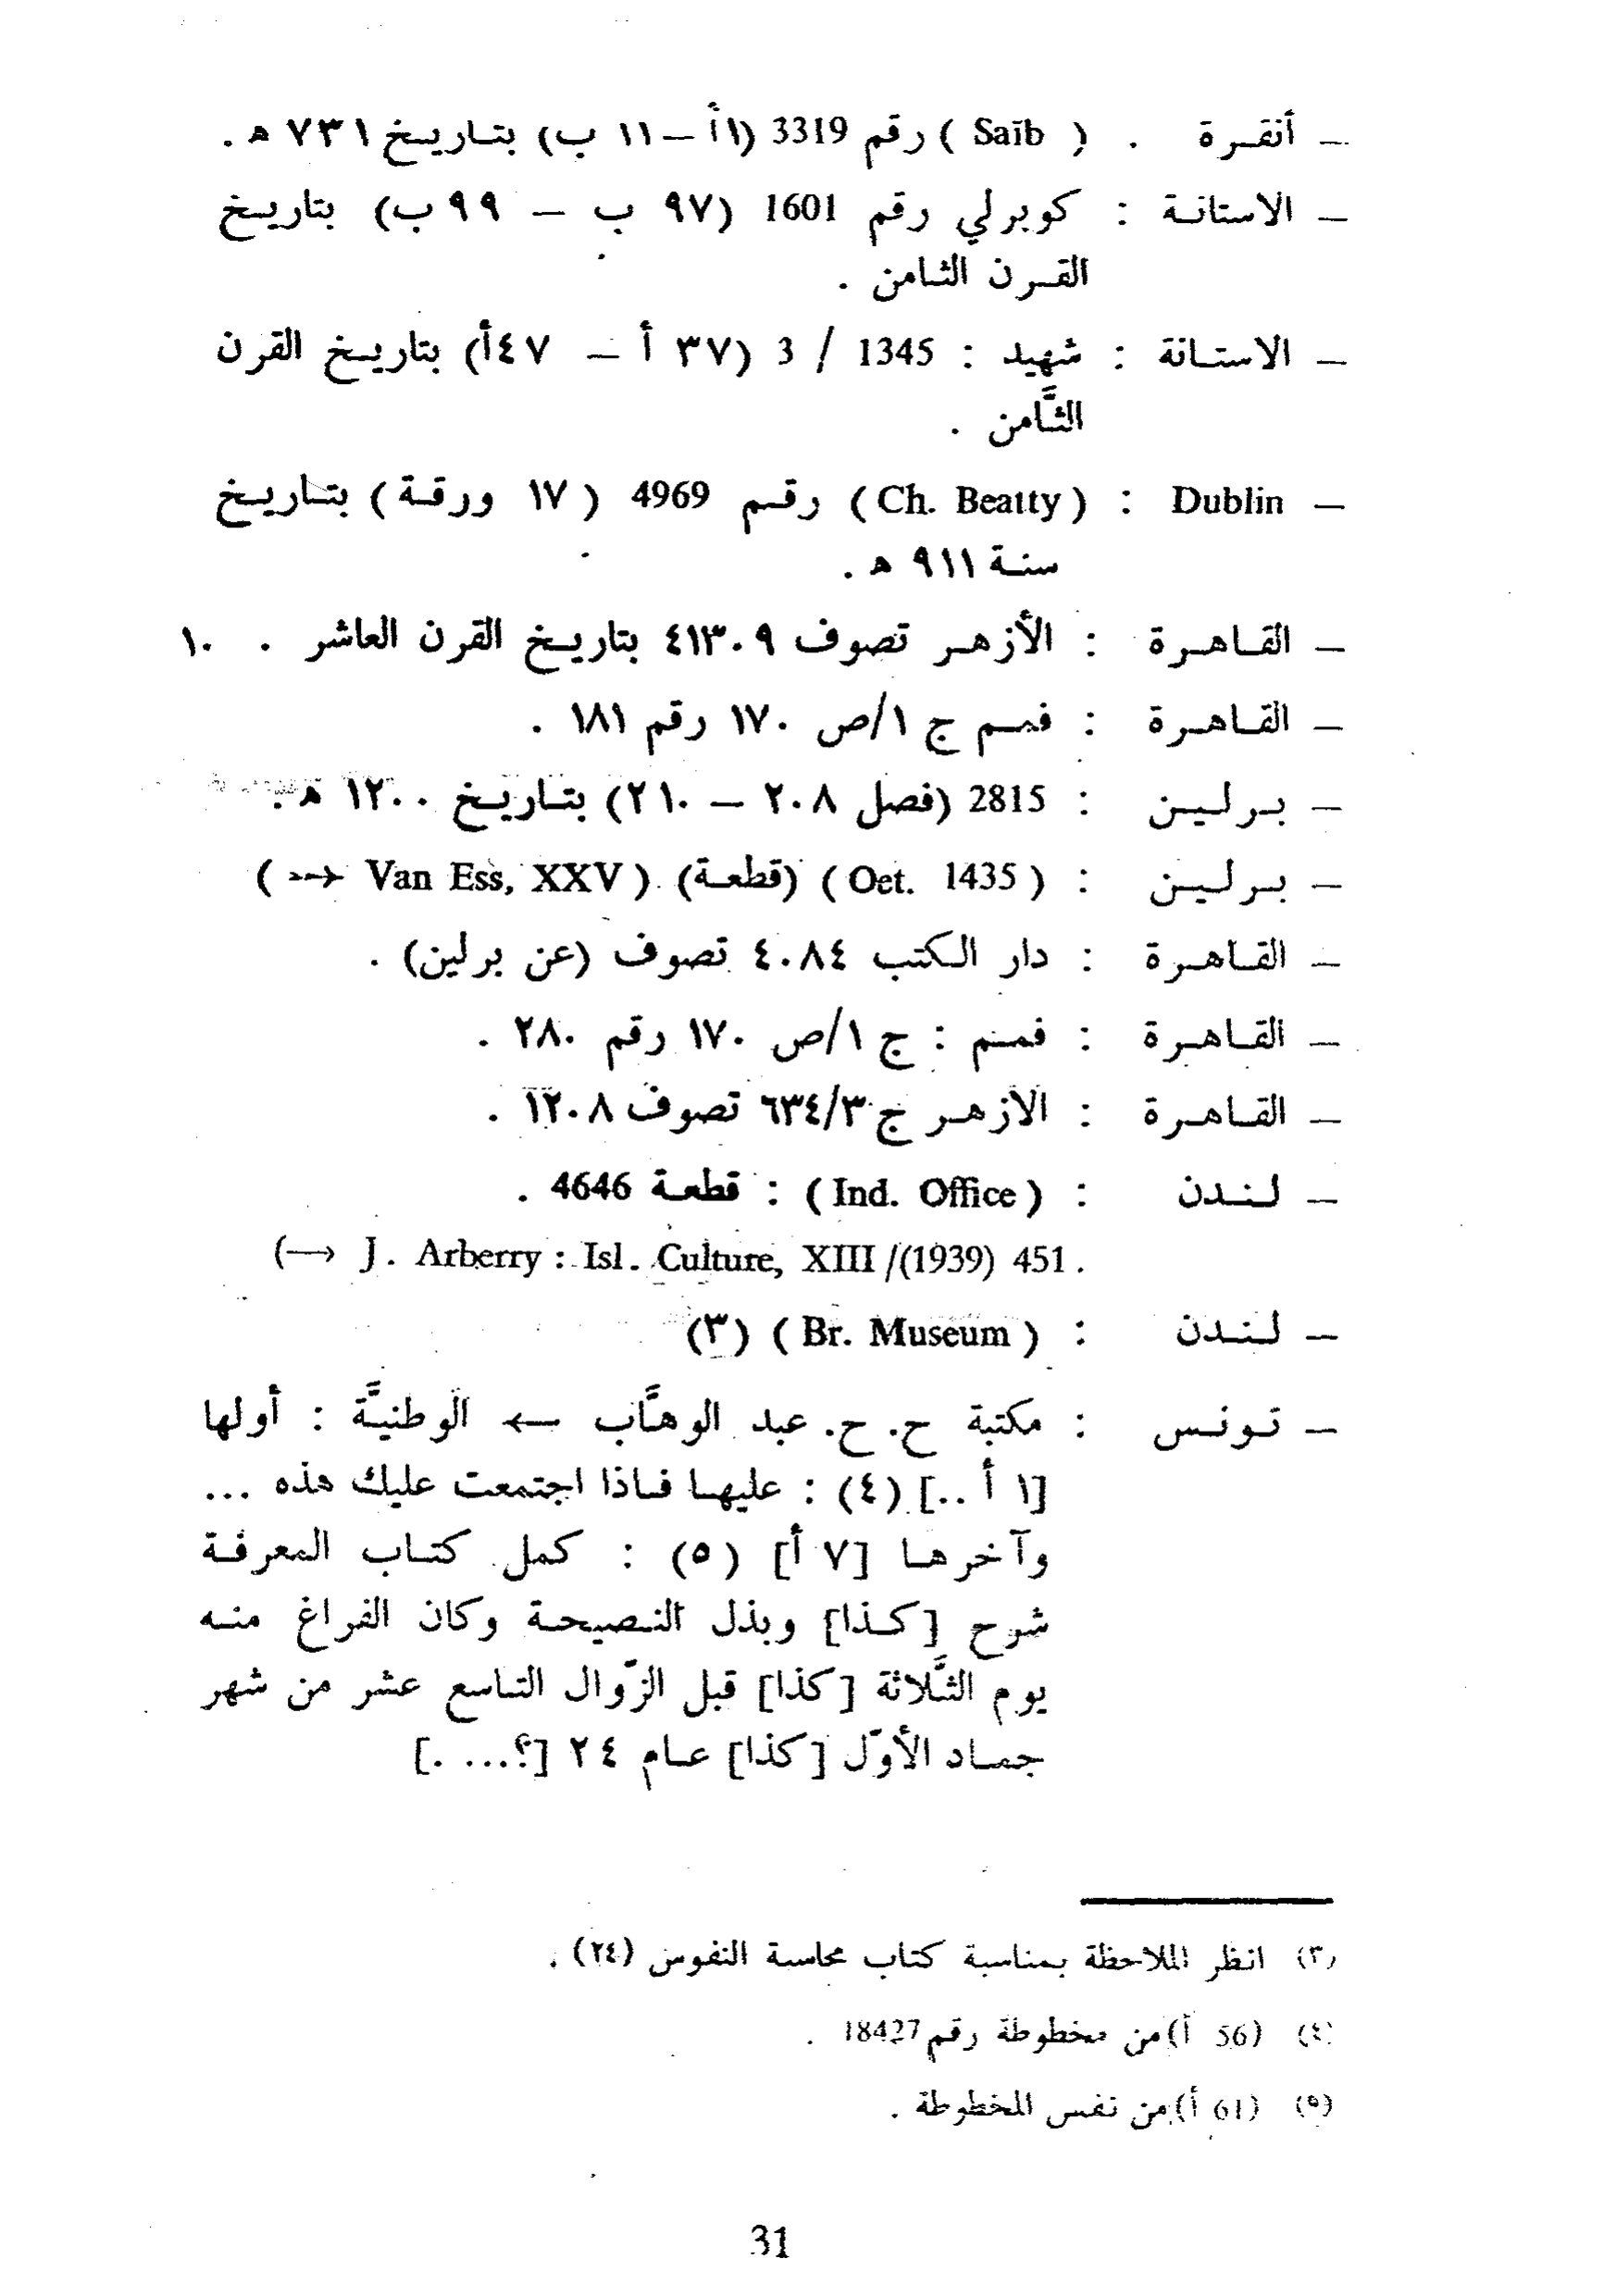 — أنقـرة . ( Saïb ) رقم 3319 (١أ — ١١ ب) بتـاريـخ ٧٣١ ه .
— الاستانـة : كوبرلي رقم 1601 (٩٧ ب — ٩٩ب) بتاريـخ
القـرن الثـامن .
— الاستـانة : شهيد : 1345 / 3 (٣٧ أ — ٤٧أ) بتاريـخ القرن
الثَّامن .
— Dublin : (Ch. Beatty) رقـم 4969 (١٧ ورقـة) بتـاريـخ
سنـة ٩١١ ه .
— القـاهـرة : الأزهـر تصوف ٤١٣٠٩ بتاريـخ القرن العاشر . ١٠
— القـاهـرة : فمـم ج ١/ص ١٧٠ رقم ١٨١ .
— بـرلـيـن : 2815 (فصل ٢٠٨ — ٢١٠) بتـاريـخ ١٢٠٠ ه .
— بـرلـيـن : (Oet. 1435) (قطعـة) (Van Ess, XXV →)
— القـاهـرة : دار الـكتب ٤٠٨٤ تصوف (عن برلين) .
— القـاهـرة : فمـم : ج ١/ص ١٧٠ رقم ٢٨٠ .
— القـاهـرة : الازهـر ج ٦٣٤/٣ تصوف ١٢٠٨ .
— لـنـدن : (Ind. Office) : قطعـة 4646 .
(→ J. Arberry : Isl. Culture, XIII /(1939) 451.
— لـنـدن : ( Br. Museum ) (٣)
— تـونـس : مكتبة ح. ح. عبد الوهَّاب ← الوطنيَّة : أولها
[١ أ ..] (٤) : عليهـا فـاذا اجتمعت عليك هذه ...
وآخرهـا [٧ أ] (٥) : كمل كتـاب المعرفـة
شرح [كـذا] وبذل النـصيحـة وكان الفراغ منـه
يوم الثَّلاثة [كذا] قبل الزّوال التـاسع عشر من شهر
جمـاد الأوّل [كذا] عـام ٢٤ [؟.... .]
(٣) انظر الملاحظة بمناسبة كتاب محاسبة النفوس (٢٤) .
(٤) (56 أ) من مخطوطة رقم 18427 .
(٥) (61 أ) من نفس المخطوطة .
31